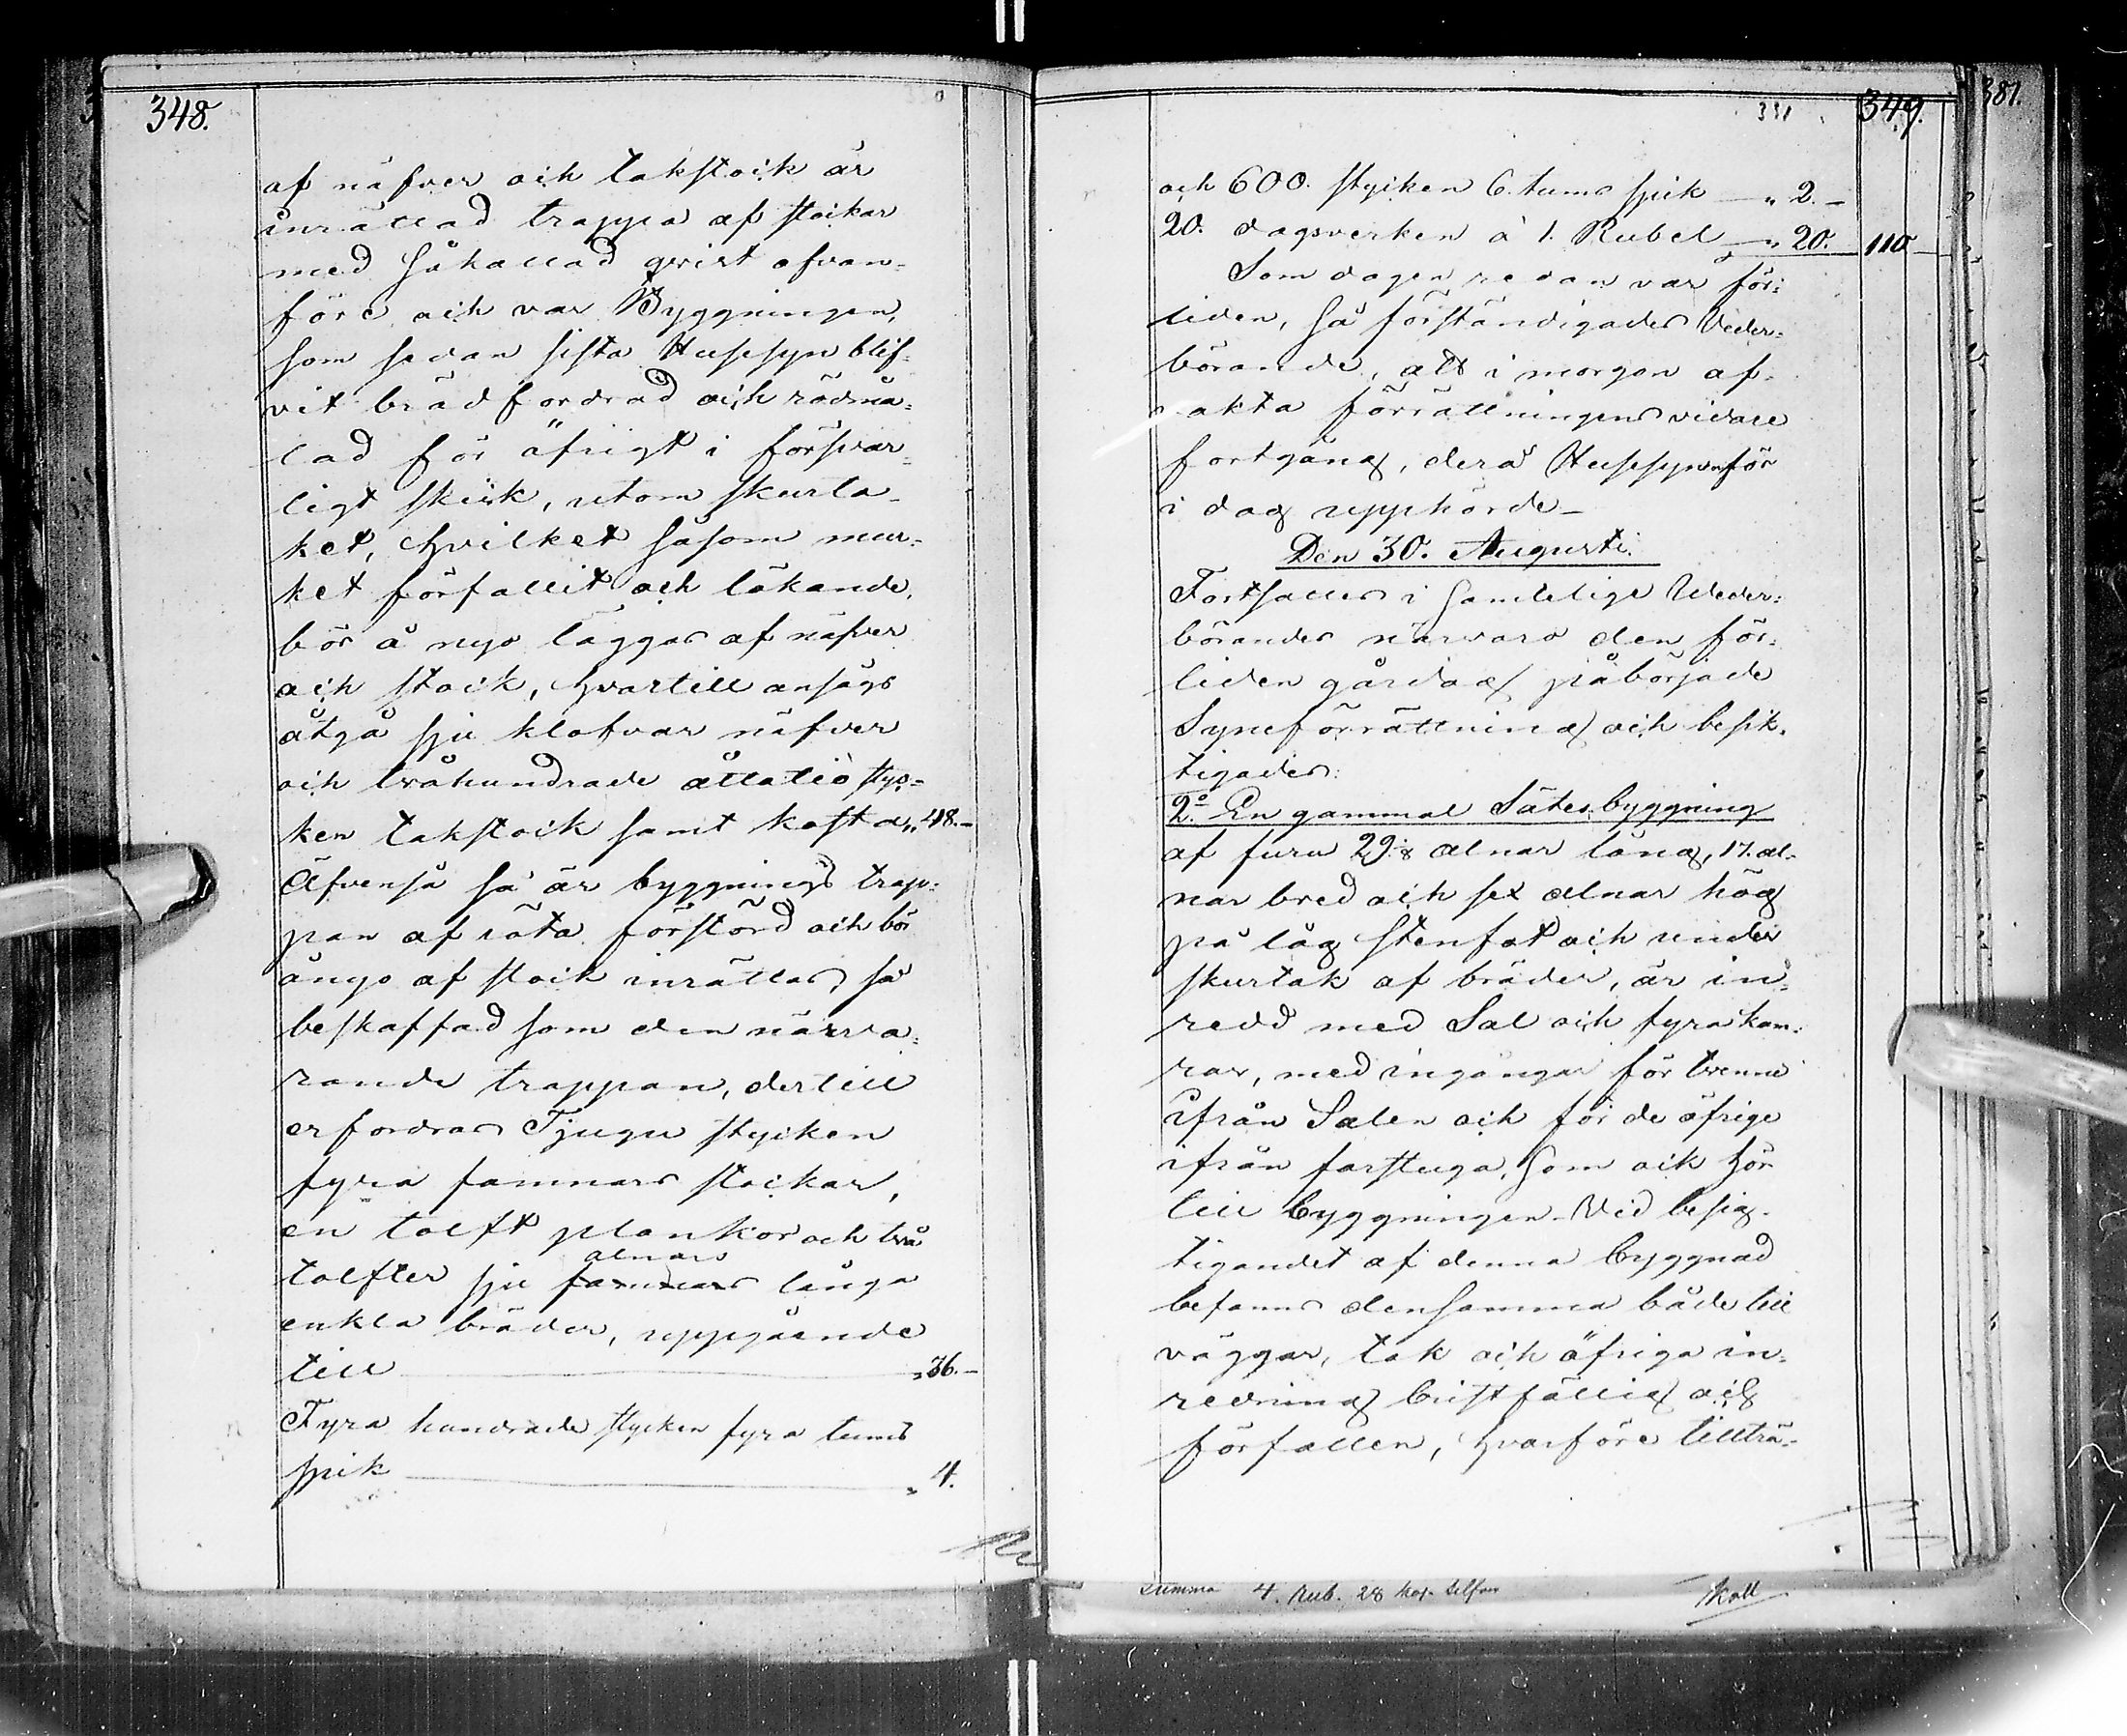 348.
af näfver och takstock är
inrättad trappa af stockar
med såkallad qvist ofvan-
före och var Byggningen,
som sedan sista Hussyn blif-
vit brädfordrad och rödmå-
lad för öfrigt i försvar-
ligt skick, utom skurta-
ket, hvilket såsom mur-
ket förfallit och läkande,
bör å nyo läggas af näfver
och stock, hvartill ansågs
åtgå sju klofvar näfver
och tvåhundrade åttatio styc-
ken takstock samt kosta „ 48.-
Äfvenså så är byggnings trap-
pan af röta förstörd och bör
ånyo af stock inrättas, så
beskaffad som den närva-
rande trappan, dertill
erfordras Tjugu stycken
fyra famnars stockar,
en tolft plankor och två
alnars
tolfter sju famnars långa
enkla bräder, uppgående
till „ 36.-
Fyra hundrade stycken fyra tums
spik „ 4.
349.
351
381.
och 600. stycken 6. tums spik — „ 2.-
20. dagsverken à 1. Rubel — „ 20. 110 -
Som dagen redan var för-
liden, så förständigades Veder-
börande, att i morgon af-
vakta förrättningens vidare
fortgång, derå Hussyn för
i dag upphörde -
Den 30. Augusti.
Fortsattes i samtelige Weder-
börandes närvaro den för-
liden gårdag påbörjade
Syneförrättning och besik-
tigades:
2:o En gammal Sätesbyggning
af furu 29. alnar lång, 17. al-
nar bred och sex alnar hög
på låg stenfot och under
skurtak af bräder, är in-
redd med Sal och fyra kam-
rar, med ingångar för trenne
ifrån Salen och för de öfrige
ifrån farstuga, som ock hör
till byggningen. Vid besig-
tigandet af denna byggnad
befanns densamma både till
väggar, tak och öfriga in-
redning bristfällig och
förfallen, hvarföre tillträ-
summa 4. Rub. 28 kop. silfver